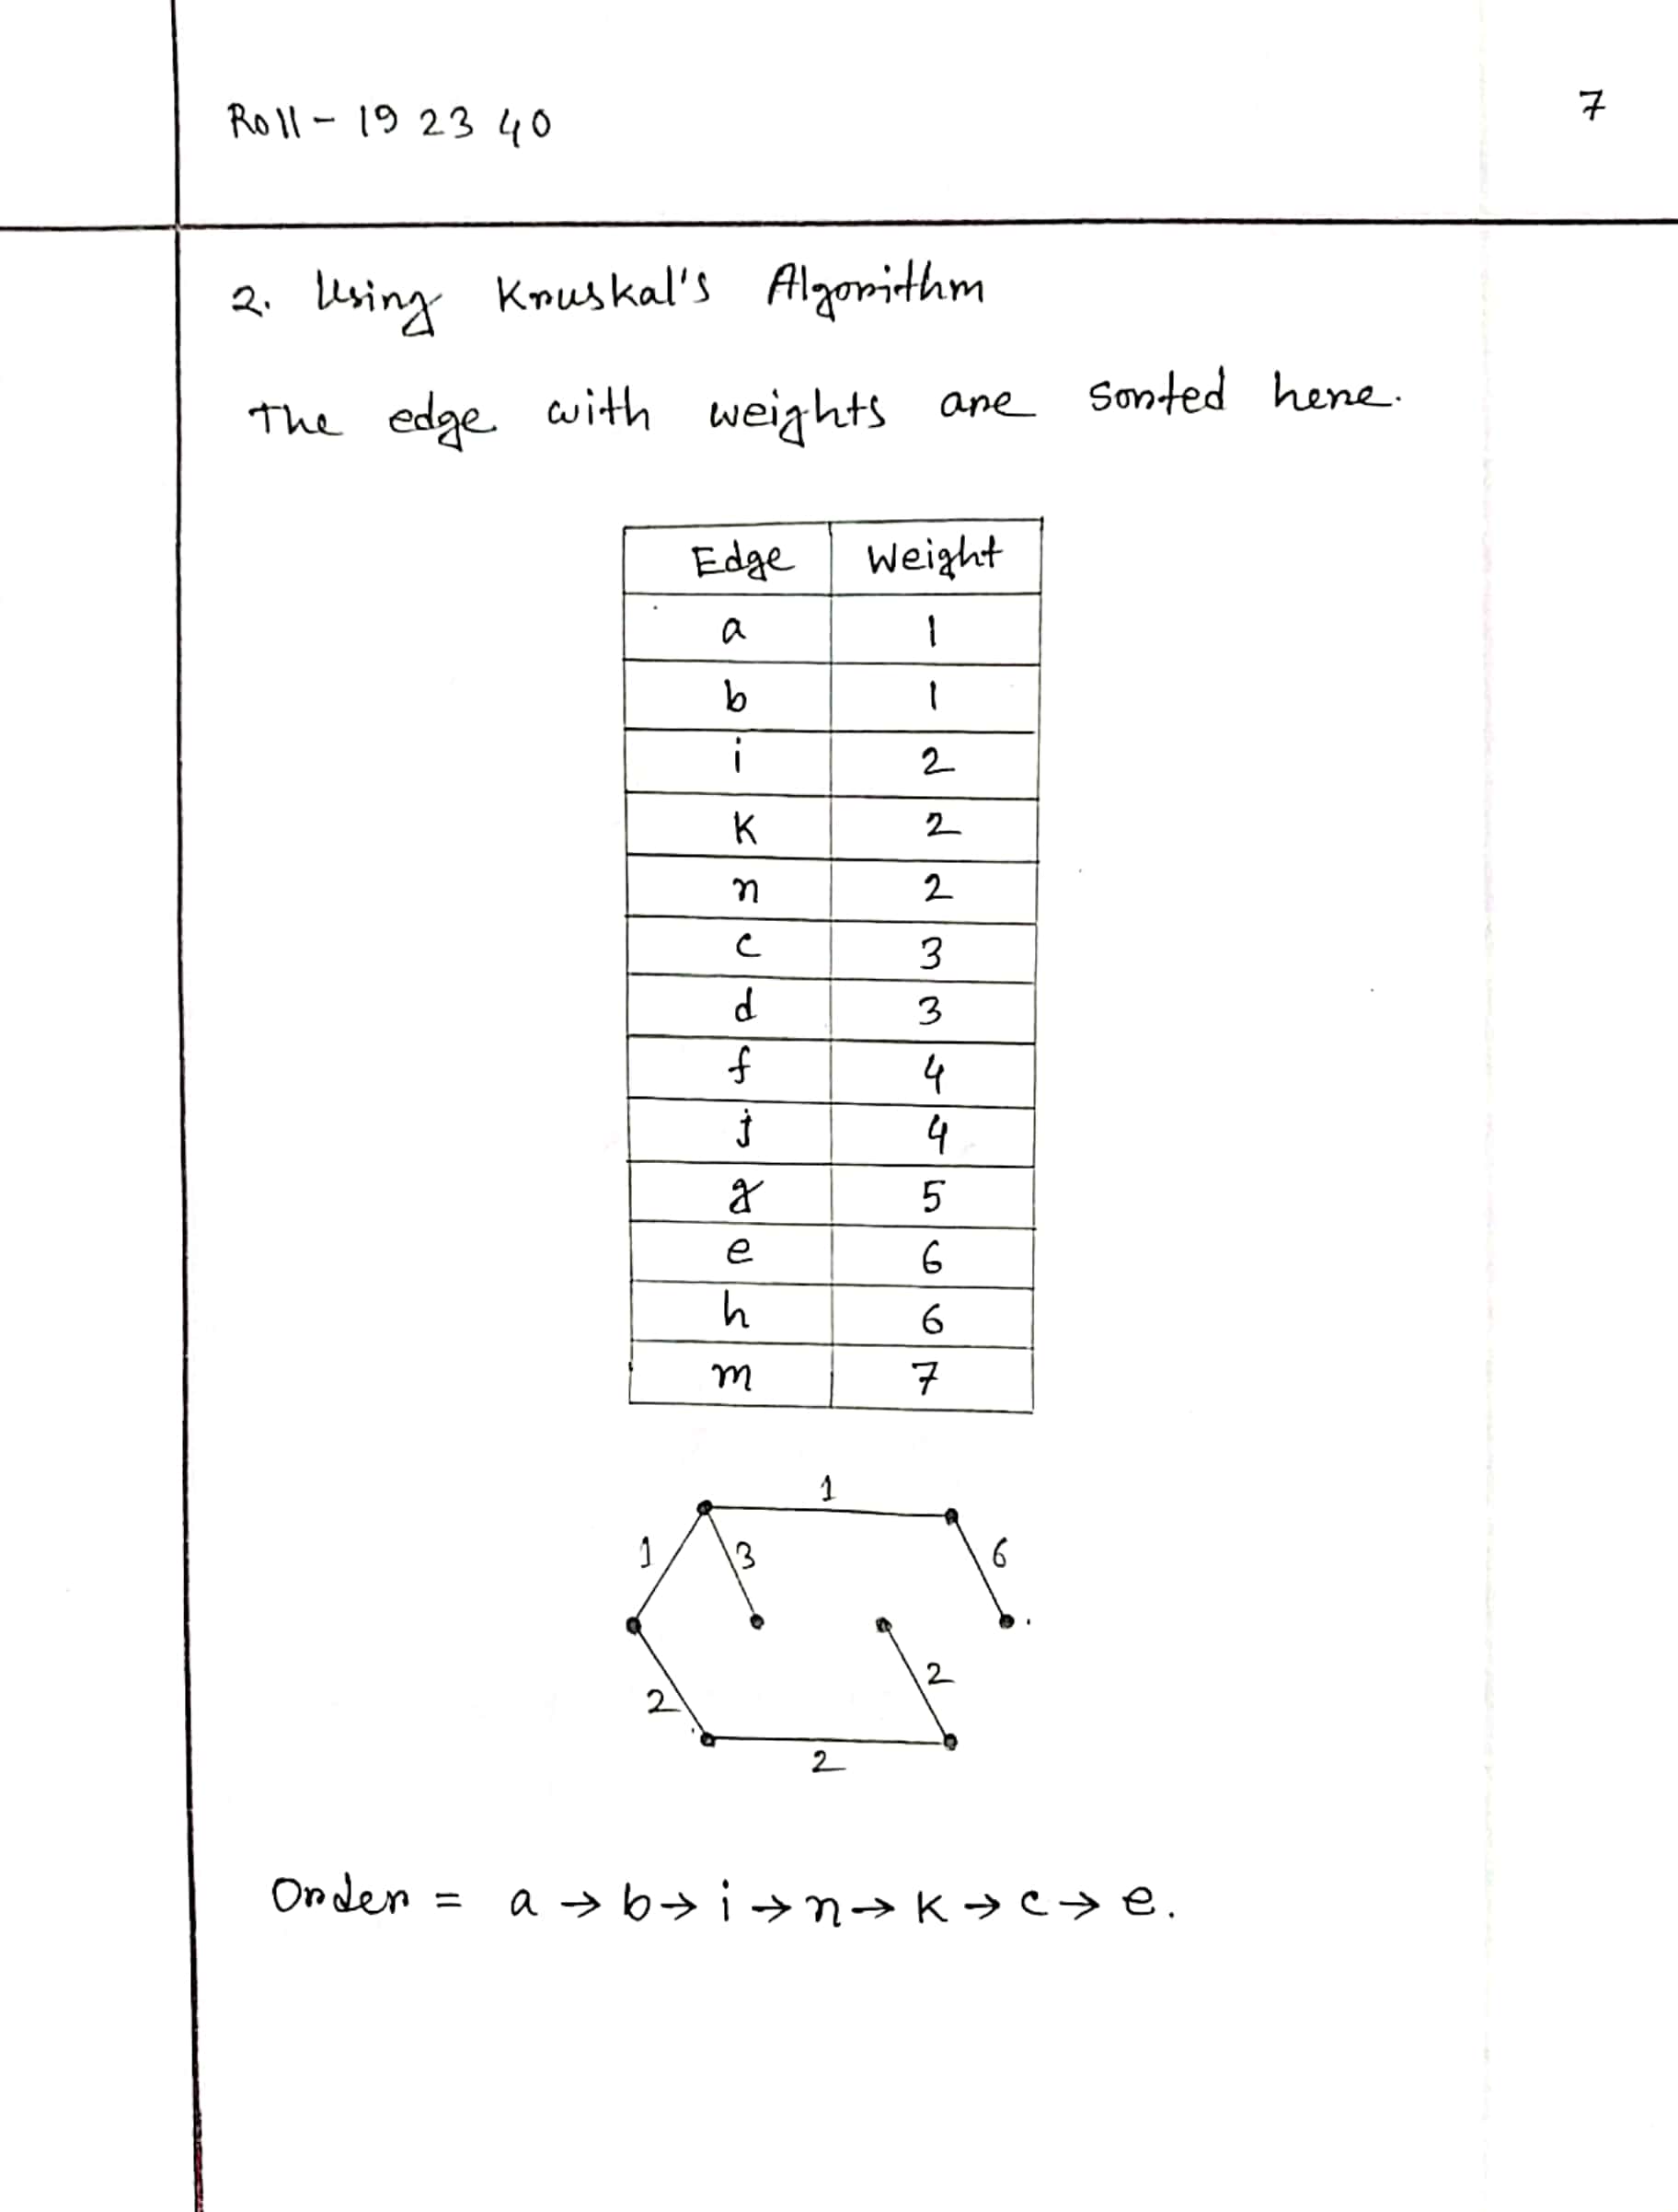 Roll - 19 23 40
7
2. Using Kruskal's Algorithm
The edge with weights are sorted here.
Edge Weight
a 1
b 1
i 2
k 2
n 2
c 3
d 3
f 4
j 4
g 5
e 6
h 6
m 7
1
1 3 6
2 2
2
Order = a → b → i → n → k → c → e.